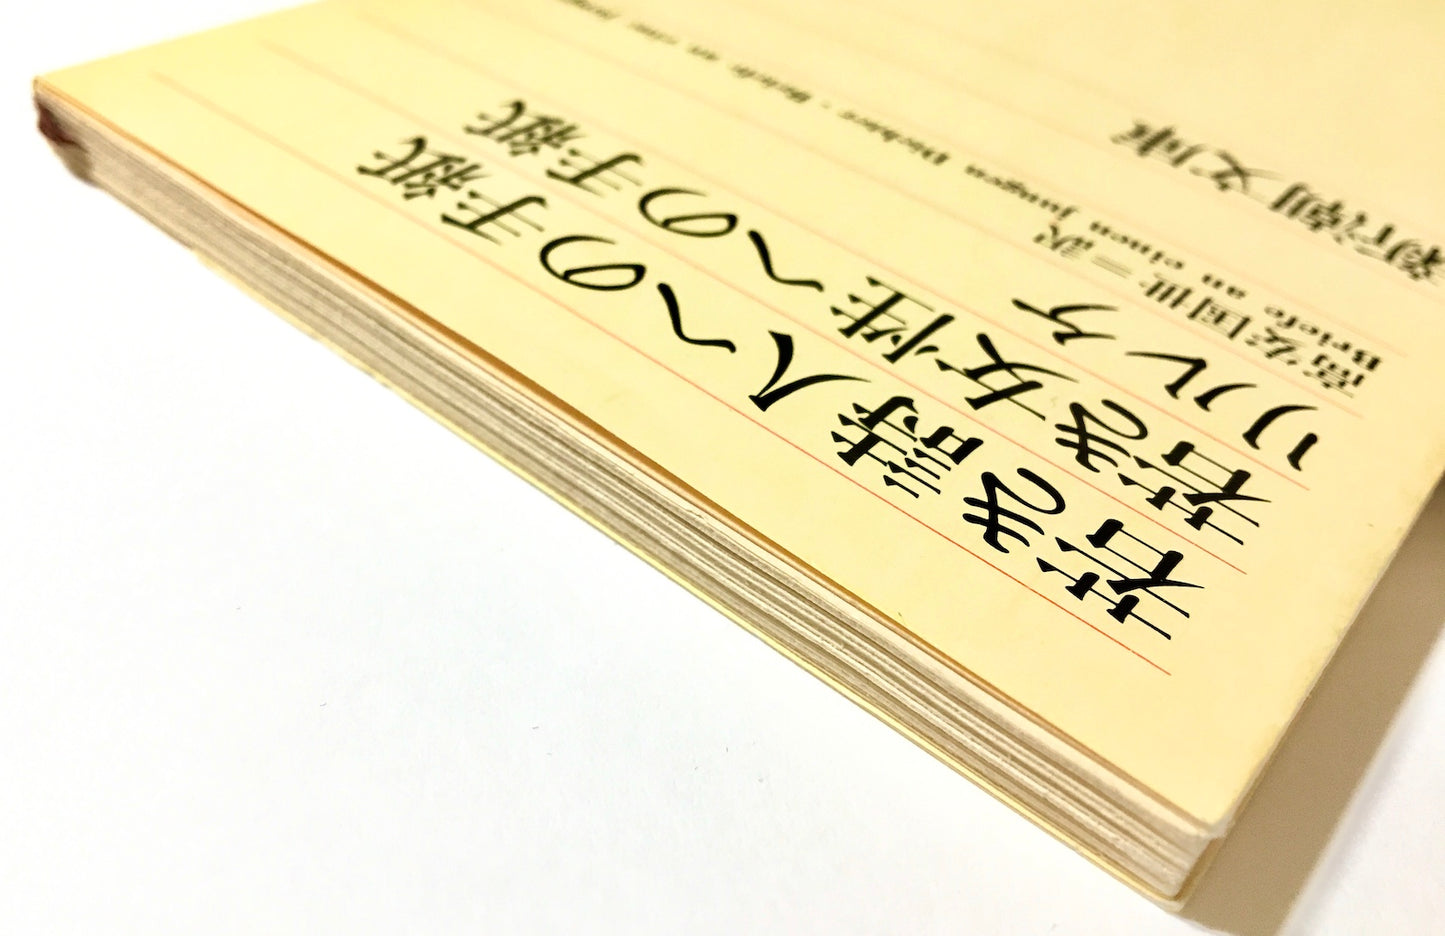 若き詩人への手紙
若き女性への手紙
リルケ
高安国世＝訳
Briefe an einen jungen Dichter · Briefe an eine junge
新潮文庫